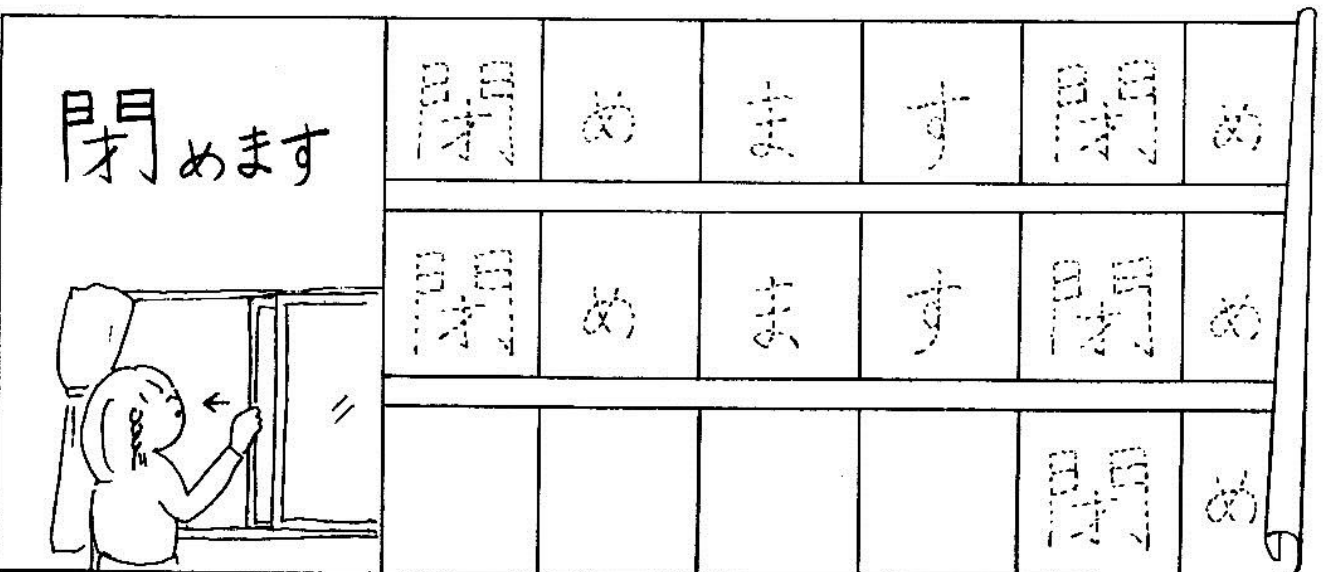 閉めます
閉めます閉め
閉めます閉め
閉め